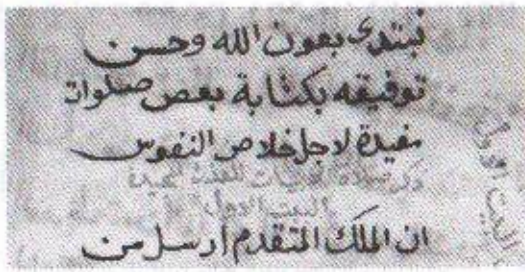 نبتدى بعون الله وحسن
توفيقه بكتابة بعض صلوات
مفيدة لاجل خلاص النفوس
البيت الاول
ان الملك المتقدم ارسل من